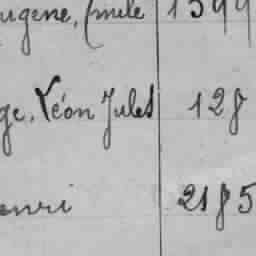 ugene, Emile 1399
ge, Léon Jules 128
enri 2185